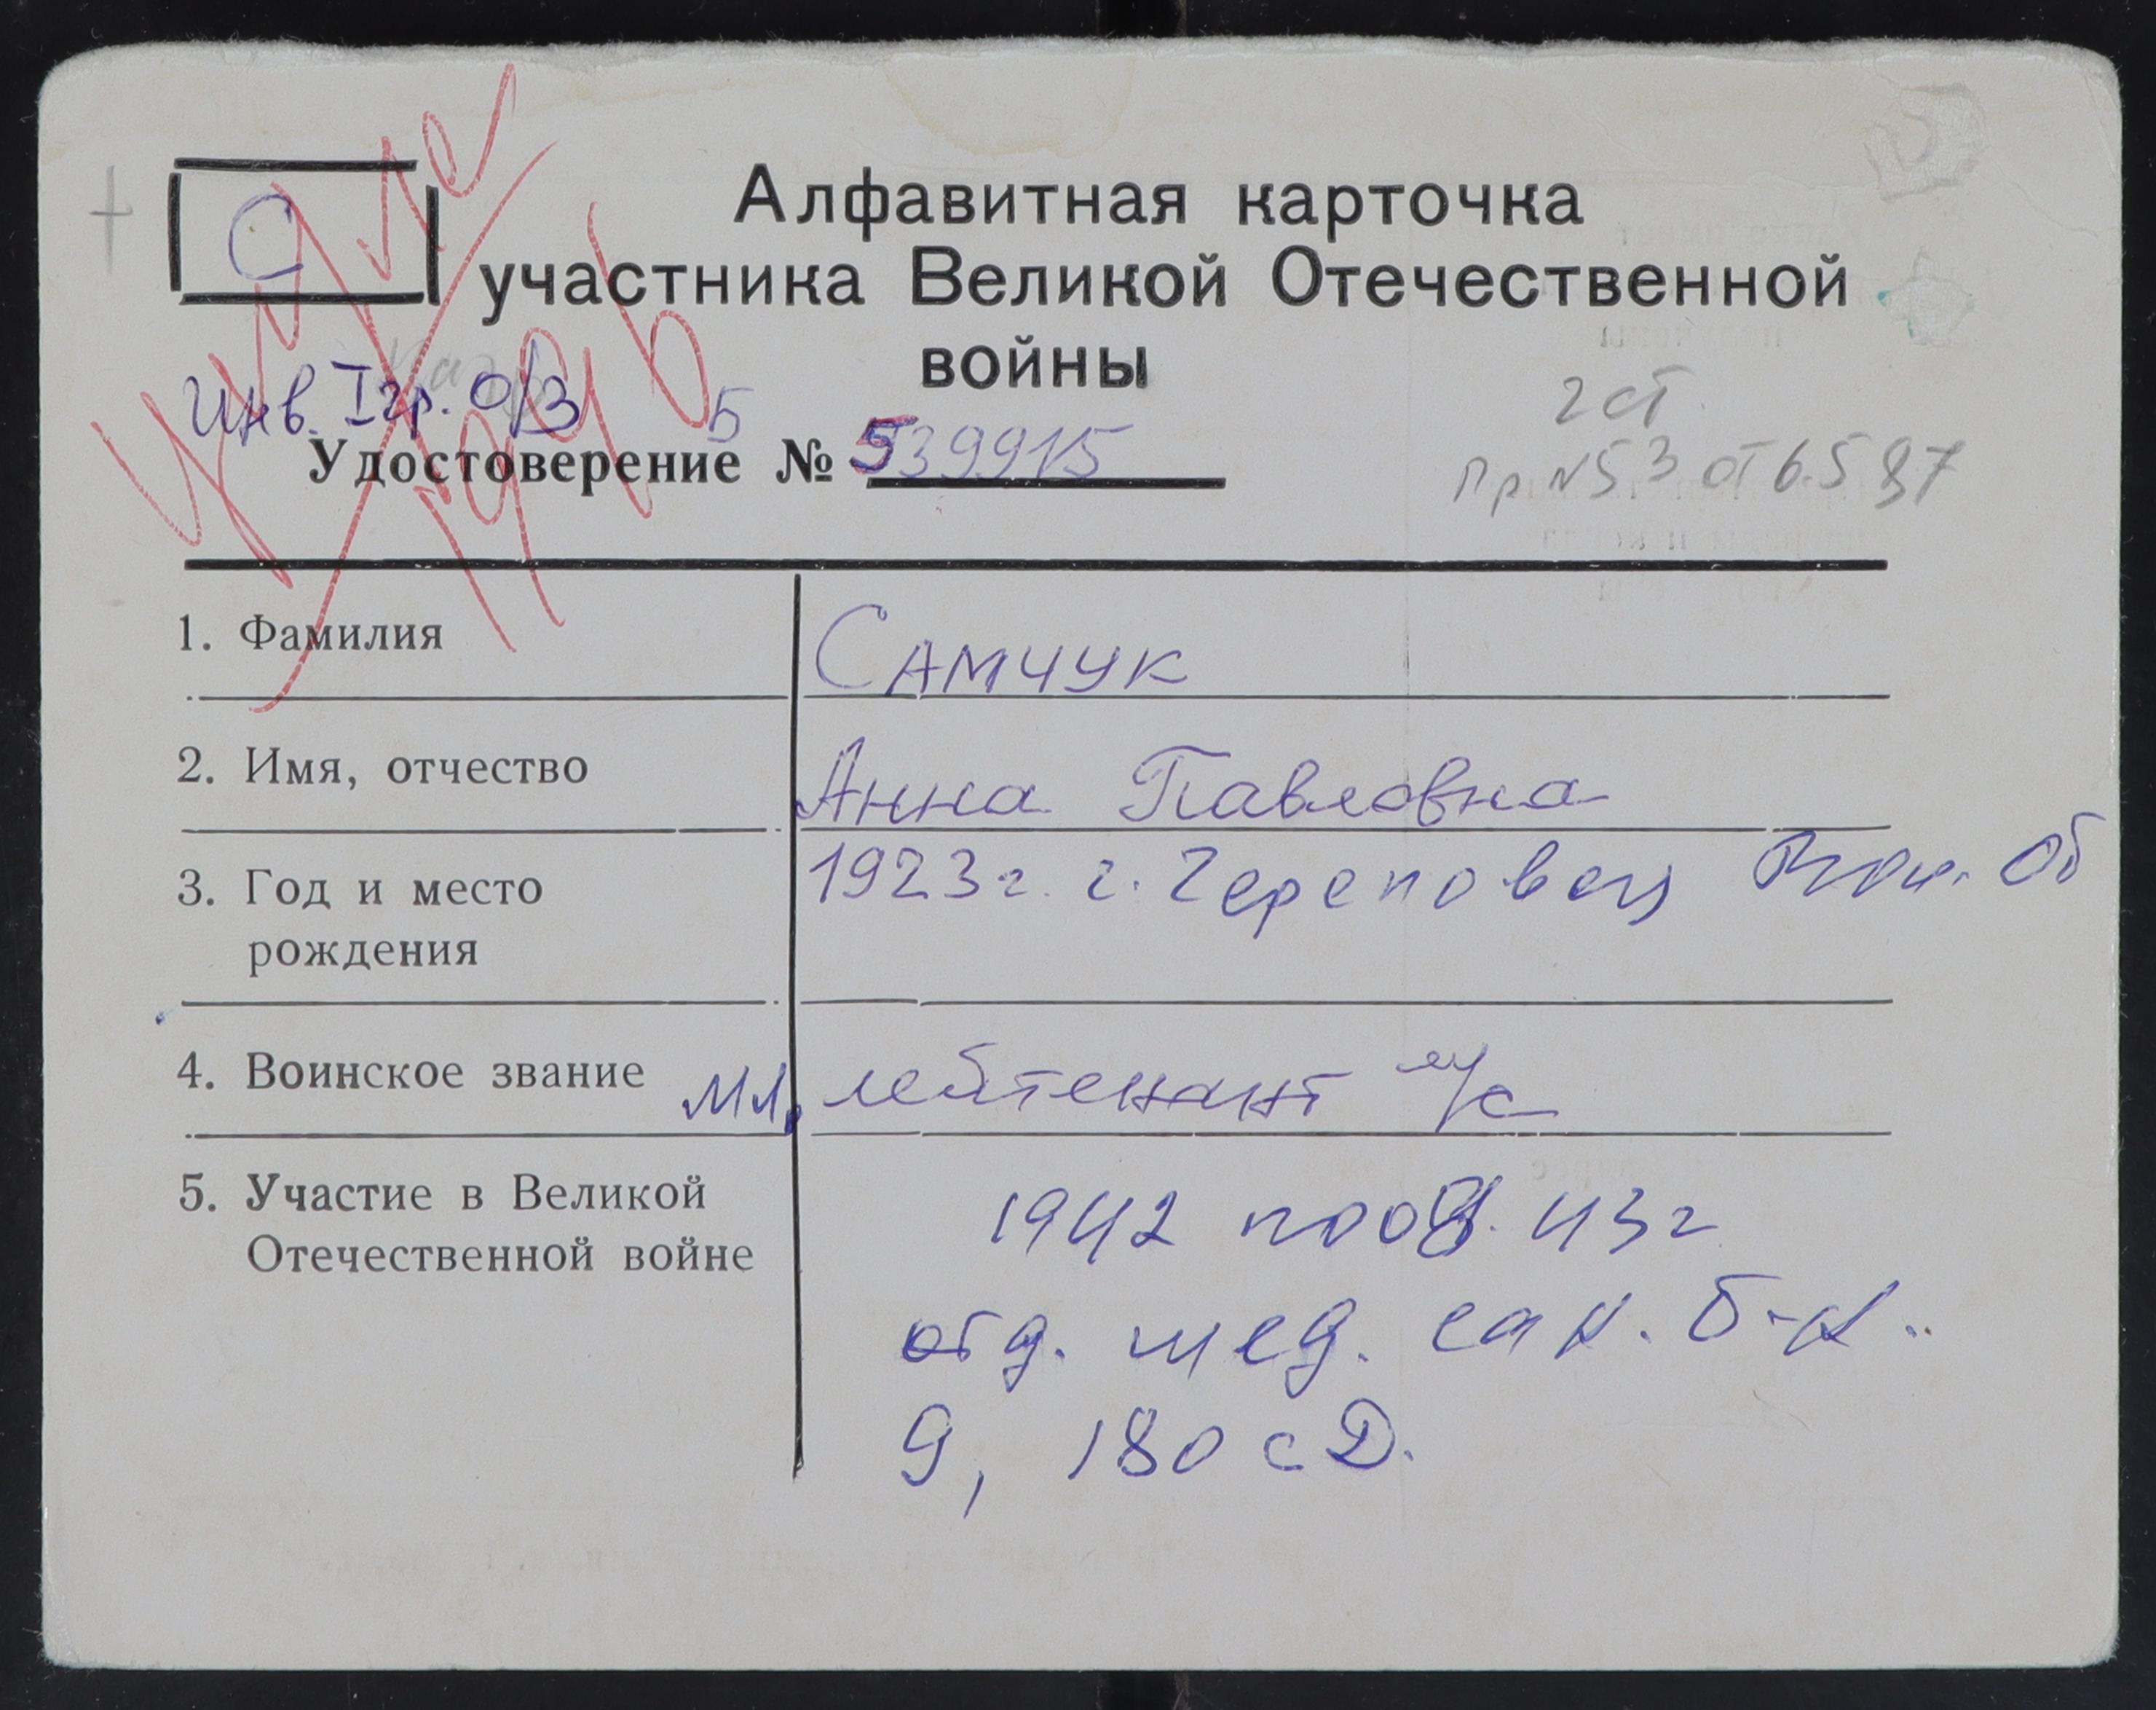 С
умерла
1996
Алфавитная карточка
участника Великой Отечественной
войны
Инв. I гр. о/з
2 ст.
Б
Удостоверение № 539915
Пр N53 от 6.5 87
1. Фамилия
Самчук
2. Имя, отчество
Анна Павловна
3. Год и место
рождения
1923 г. г. Череповец об
4. Воинское звание
мл. лейтенант м/с
5. Участие в Великой
Отечественной войне
1942 по 43 г
отд. мед. сан. б-н.
9, 180 сд.